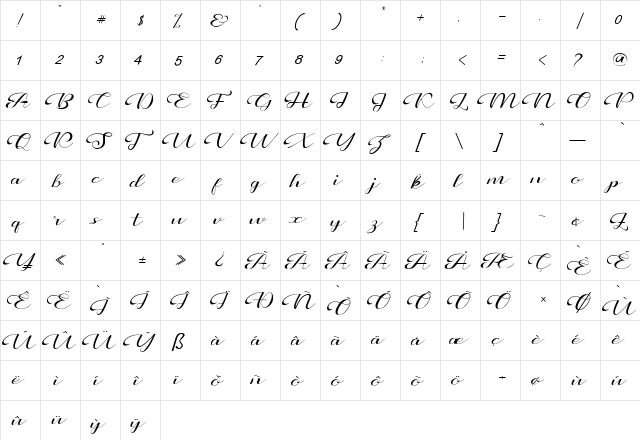 ! " # $ % & ' ( ) * + , - . / 0
1 2 3 4 5 6 7 8 9 : ; < = > ? @
A B C D E F G H I J K L M N O P
Q R S T U V W X Y Z [ \ ] ^ — `
a b c d e f g h i j k l m n o p
q r s t u v w x y z { | } ~ ¢ £
¥ « ° ± » ¿ À Á Â Ã Ä Å Æ Ç È É
Ê Ë Ì Í Î Ï Ð Ñ Ò Ó Ô Õ Ö × Ø Ù
Ú Û Ü Ý ß à á â ã ä å æ ç è é ê
ë ì í î ï ð ñ ò ó ô õ ö ÷ ø ù ú
û ü ý ÿ